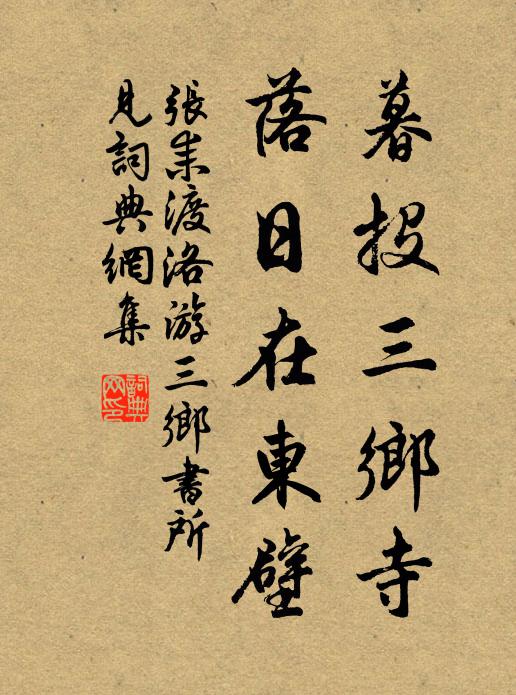 暮投三鄉寺
落日在東壁
張耒渡洛游三鄉書所
見詞典網集
詞典
网印